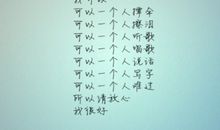 可以一个人撑伞
可以一个人擦泪
可以一个人听歌
可以一个人唱歌
可以一个人说话
可以一个人写字
可以一个人难过
所以请放心
我很好